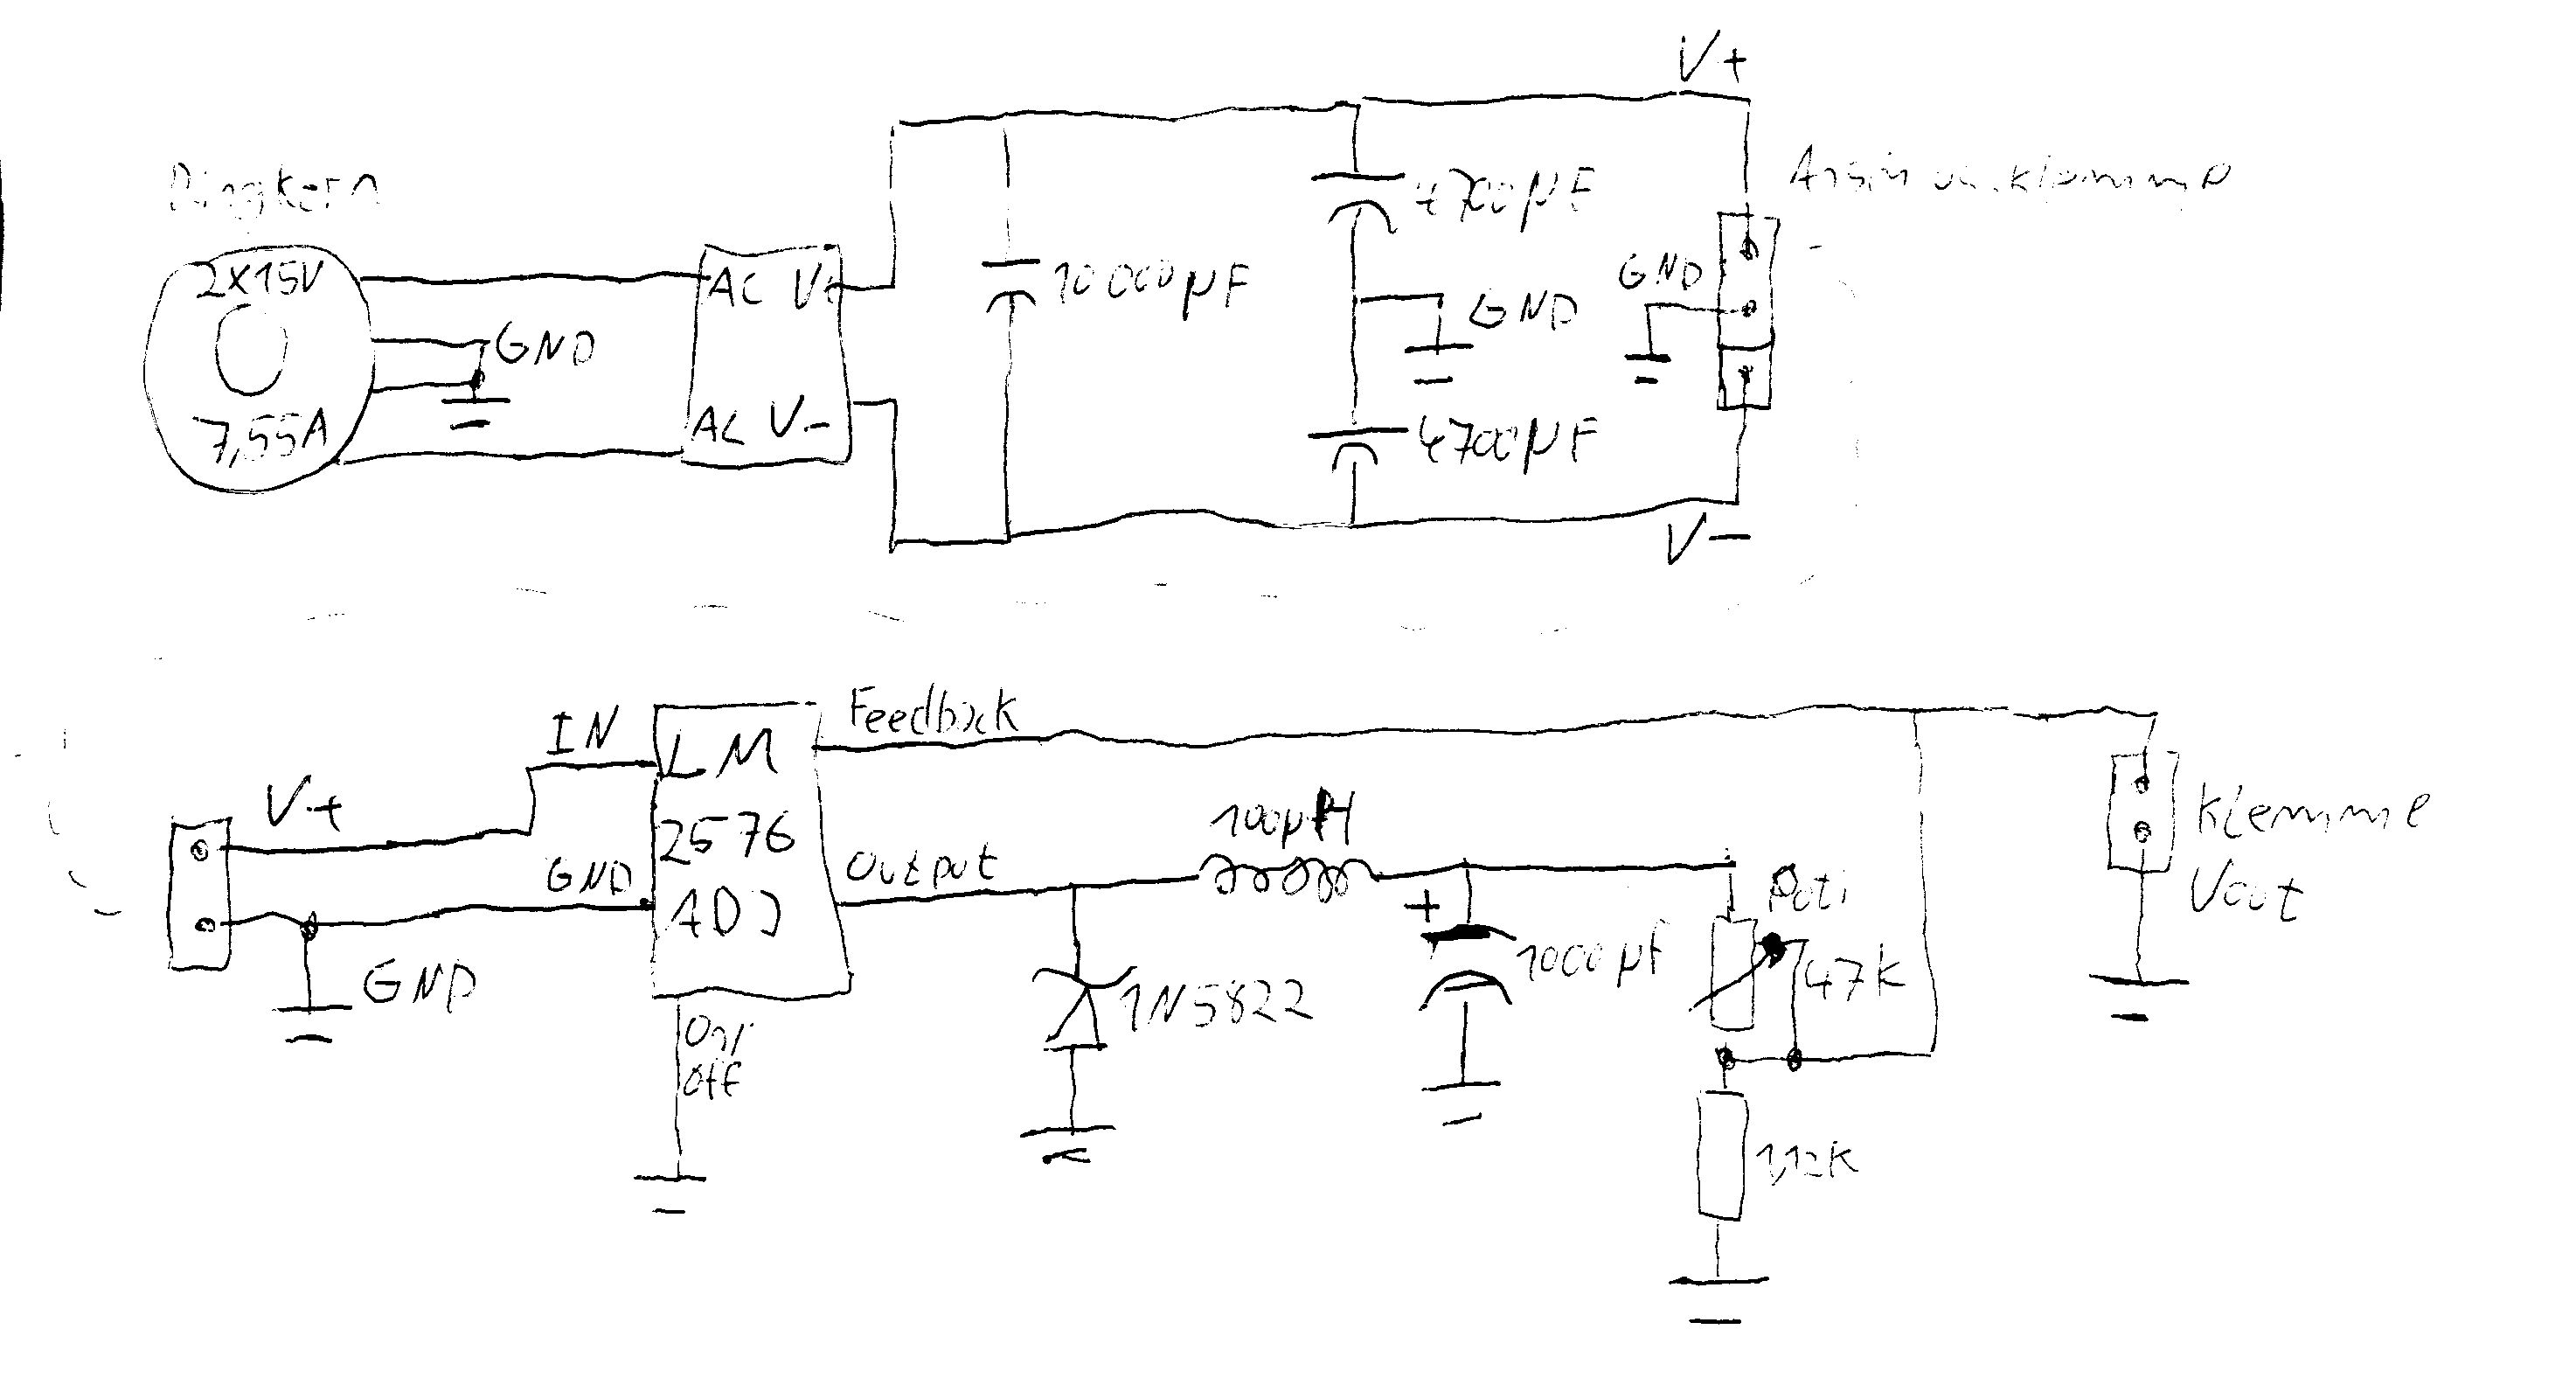 V+
Ringkern
2x15V
7,55A
GND
AC V+
AC V-
10000µF
4700µF
GND
4700µF
GND
V-
V+
IN
GND
GND
LM
2576
ADJ
On/
Off
Feedback
Output
1N5822
100µH
+
1000µF
Poti
47K
1,12K
Klemme
Vout